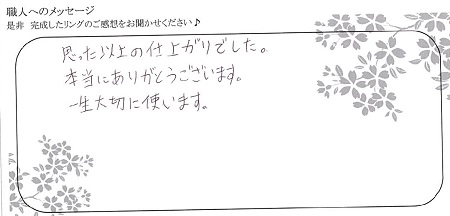 職人へのメッセージ
是非 完成したリングのご感想をお聞かせください♪
思った以上の仕上がりでした。
本当にありがとうございます。
一生大切に使います。